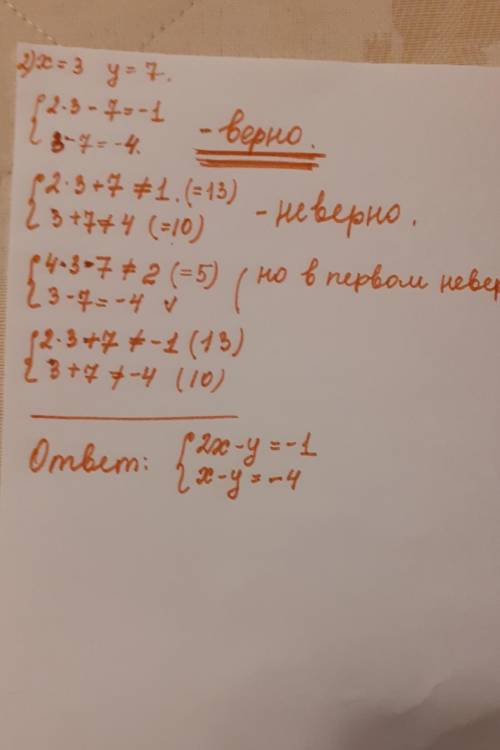 2) x = 3 y = 7.
{ 2·3 - 7 = -1
3 - 7 = -4. - верно.
{ 2·3 + 7 ≠ 1. (=13)
3 + 7 ≠ 4 (=10) - неверно.
{ 4·3 - 7 ≠ 2 (=5) ( но в первом невер
3 - 7 = -4 ✓
{ 2·3 + 7 ≠ -1 (13)
3 + 7 ≠ -4 (10)
Ответ: { 2x - y = -1
x - y = -4